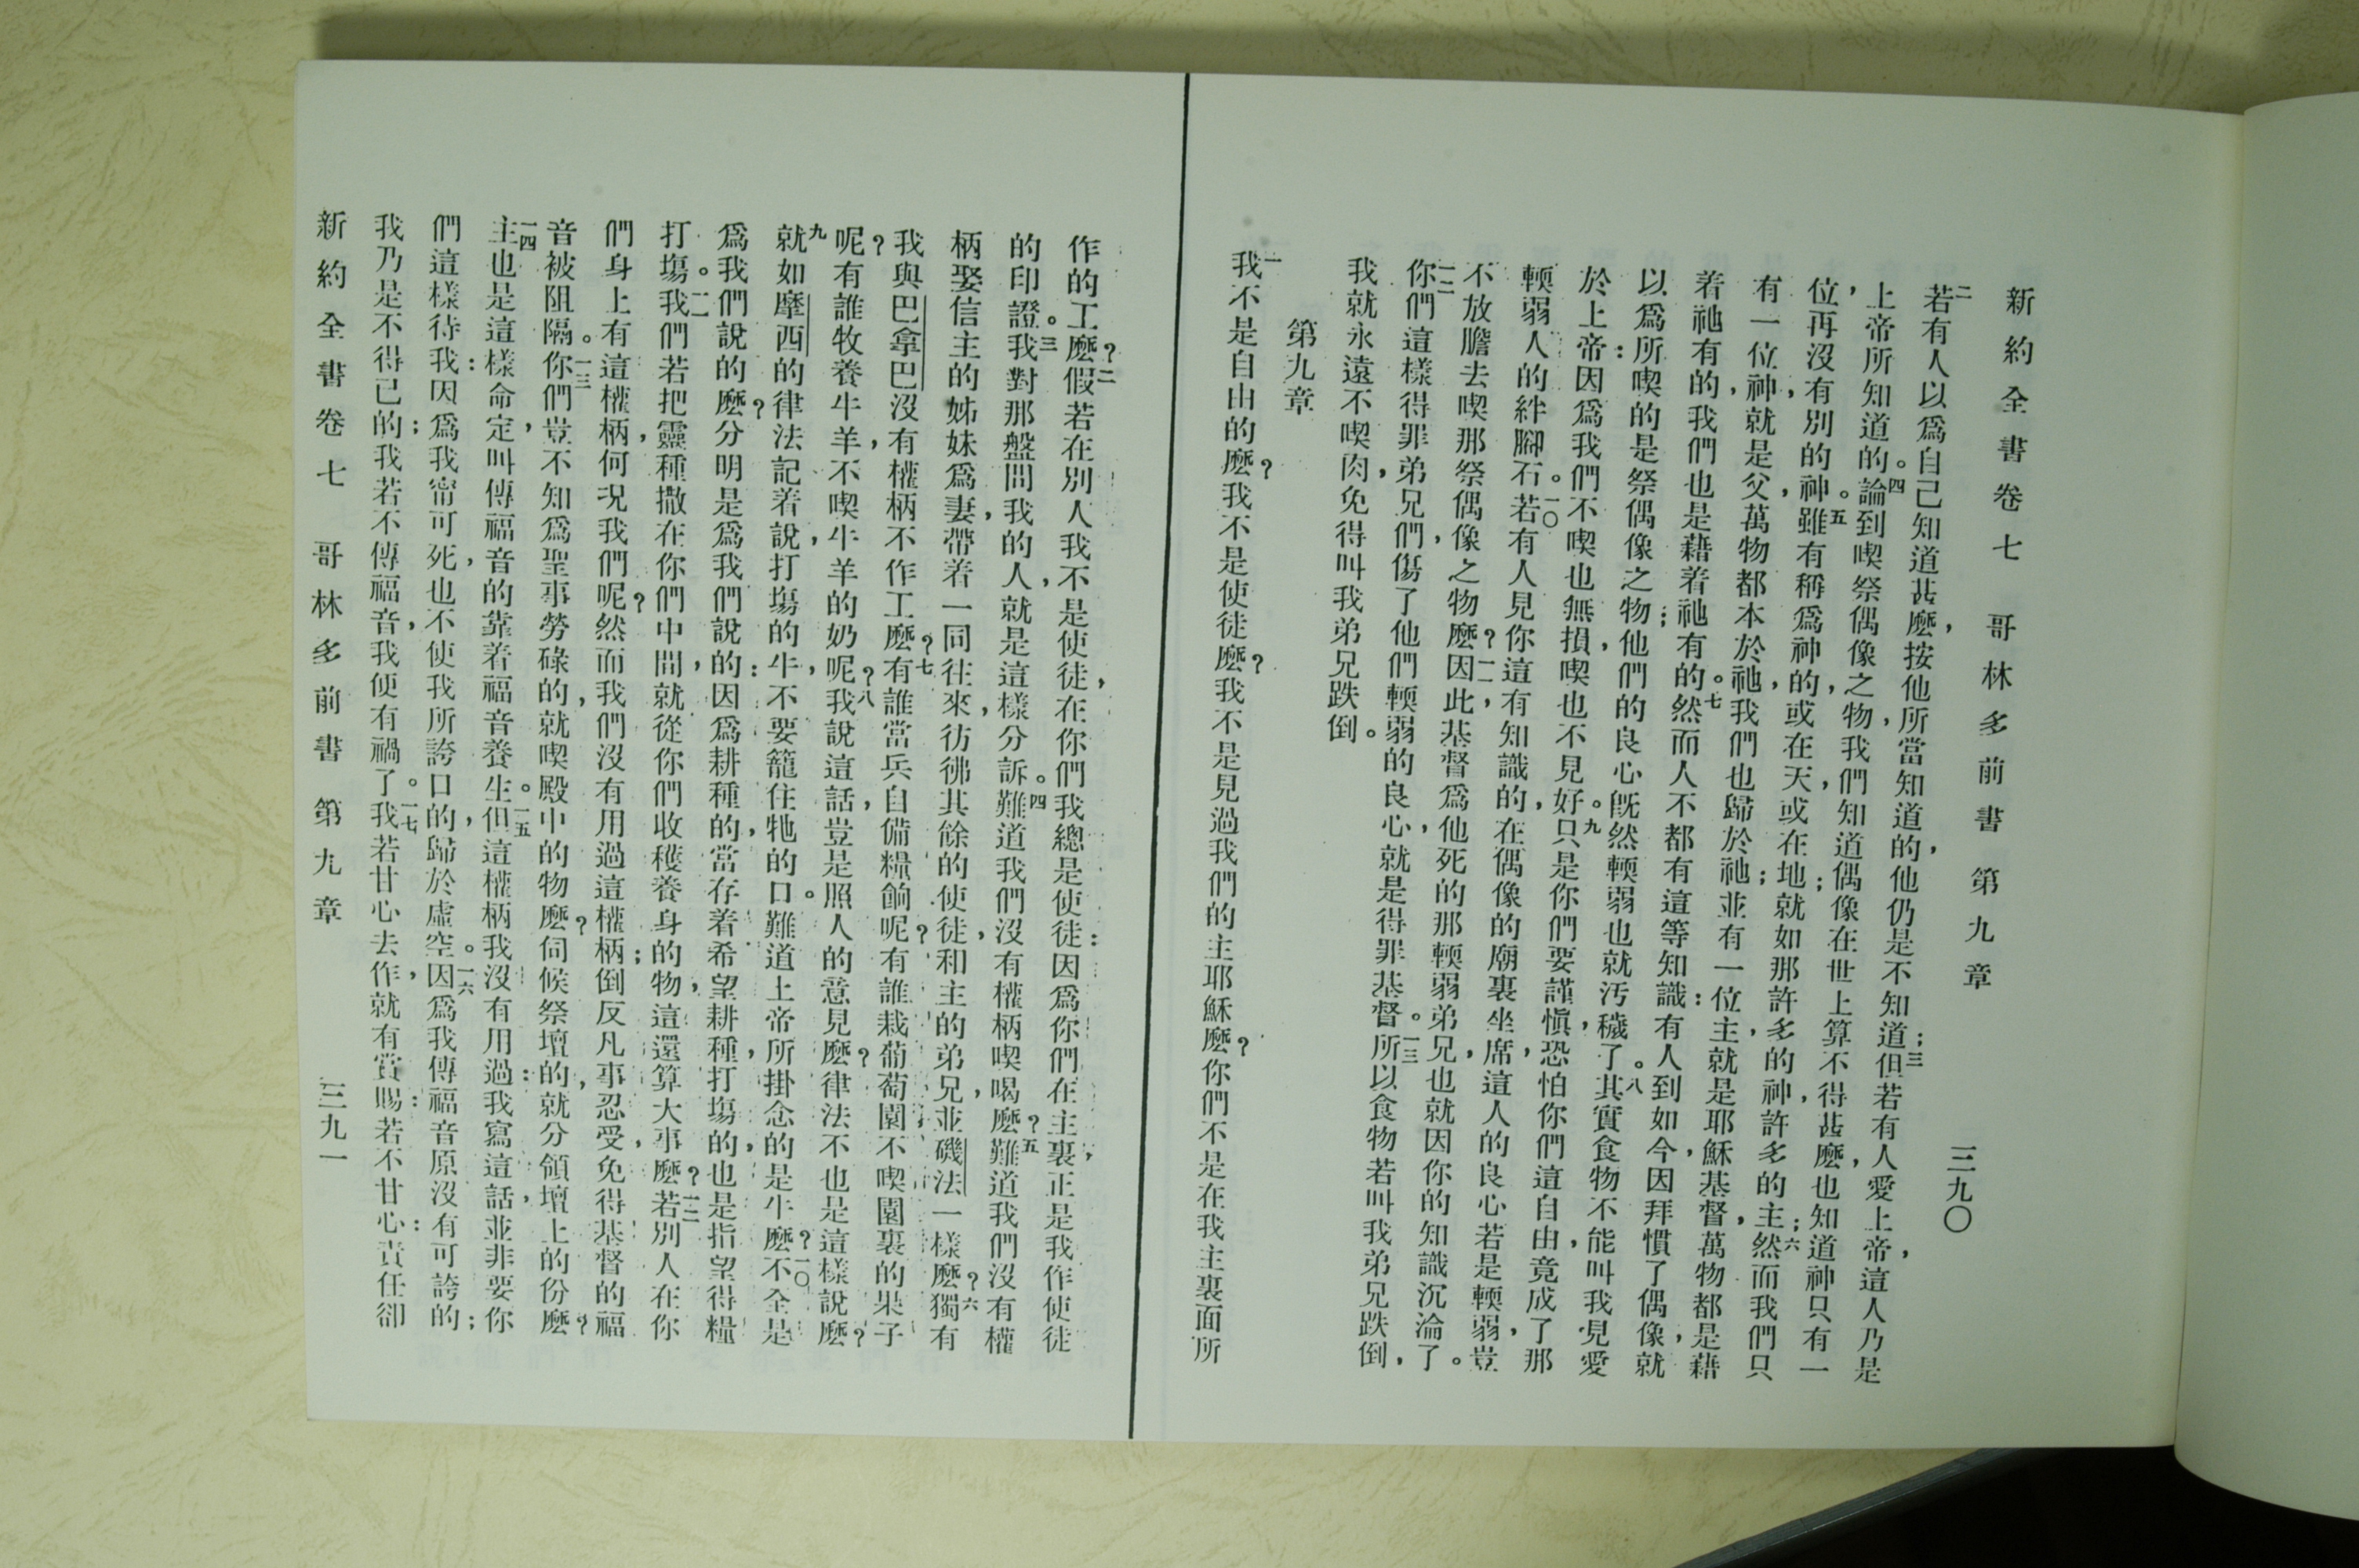 新約全書卷七　哥林多前書　第九章　三九〇
二若有人以爲自己知道甚麼，按他所當知道的，他仍是不知道；三但若有人愛上帝，這人乃是
上帝所知道的。四論到喫祭偶像之物，我們知道偶像在世上算不得甚麼，也知道神只有一
位，再沒有別的神。五雖有稱爲神的，或在天，或在地；就如那許多的神，許多的主；六然而我們只
有一位神，就是父，萬物都本於祂，我們也歸於祂；並有一位主，就是耶穌基督，萬物都是藉
着祂有的，我們也是藉着祂有的。七然而人不都有這等知識：有人到如今，因拜慣了偶像，就
以爲所喫的是祭偶像之物；他們的良心旣然輭弱，也就汚穢了。八其實食物不能叫我見愛
於上帝：因爲我們不喫也無損，喫也不見好。九只是你們要謹愼，恐怕你們這自由，竟成了那
輭弱人的絆腳石。一〇若有人見你這有知識的，在偶像的廟裏坐席，這人的良心，若是輭弱，豈
不放膽去喫那祭偶像之物麼？一一因此，基督爲他死的那輭弱弟兄，也就因你的知識沉淪了。
一二你們這樣得罪弟兄們，傷了他們輭弱的良心，就是得罪基督。一三所以食物若叫我弟兄跌倒，
我就永遠不喫肉，免得叫我弟兄跌倒。
第九章
一我不是自由的麼？我不是使徒麼？我不是見過我們的主耶穌麼？你們不是在我主裏面所
作的工麼？二假若在別人我不是使徒，在你們我總是使徒：因爲你們在主裏，正是我作使徒
的印證。三我對那盤問我的人，就是這樣分訴。四難道我們沒有權柄喫喝麼？五難道我們沒有權
柄娶信主的姊妹爲妻，帶着一同往來，彷彿其餘的使徒，和主的弟兄，並磯法一樣麼？六獨有
我與巴拿巴沒有權柄不作工麼？七有誰當兵，自備糧餉呢？有誰栽葡萄園，不喫園裏的果子
呢？有誰牧養牛羊，不喫牛羊的奶呢？八我說這話，豈是照人的意見麼？律法不也是這樣說麼？
九就如摩西的律法記着說，打塲的牛，不要籠住牠的口。難道上帝所掛念的是牛麼？一〇不全是
爲我們說的麼？分明是爲我們說的：因爲耕種的，當存着希望耕種，打塲的，也是指望得糧
打塲。一一我們若把靈種撒在你們中間，就從你們收穫養身的物，這還算大事麼？一二若別人在你
們身上有這權柄，何況我們呢？然而我們沒有用過這權柄；倒反凡事忍受，免得基督的福
音被阻隔。一三你們豈不知爲聖事勞碌的，就喫殿中的物麼？伺候祭壇的，就分領壇上的份麼？
一四主也是這樣命定，叫傳福音的靠着福音養生。一五但這權柄我沒有用過：我寫這話，並非要你
們這樣待我：因爲我甯可死，也不使我所誇口的，歸於虛空。一六因爲我傳福音原沒有可誇的；
我乃是不得已的；我若不傳福音，我便有禍了。一七我若甘心去作，就有賞賜：若不甘心：責任卻
新約全書卷七　哥林多前書　第九章　三九一